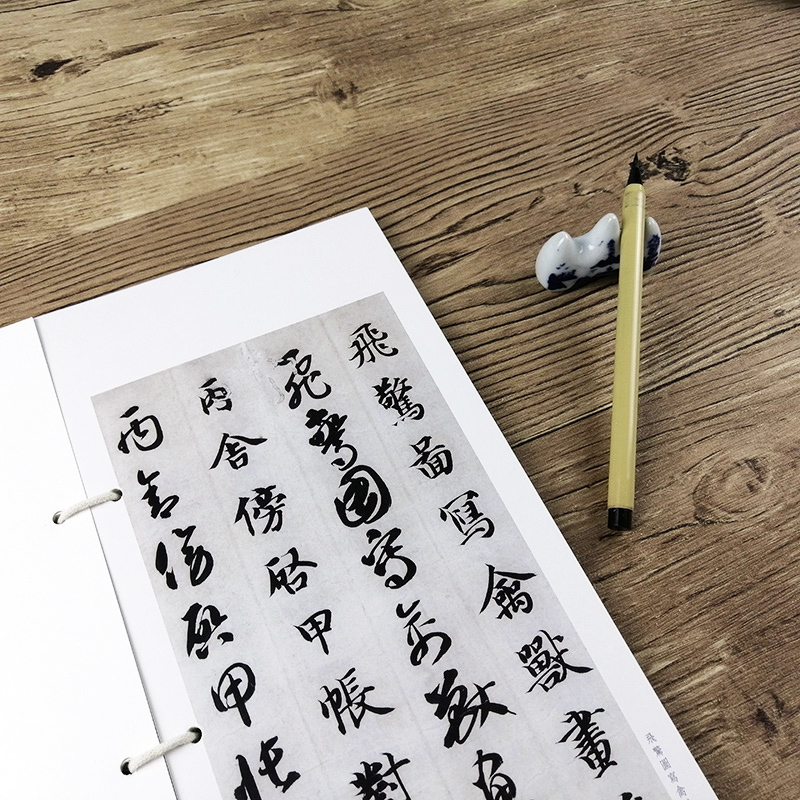 飛驚啚寫禽獸畫
飛驚圖寫禽獸畫
丙舍傍啓甲帳對
丙舍傍啓甲帳
飛驚圖寫禽